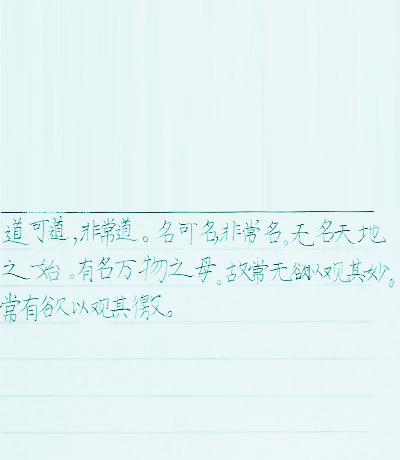 道可道,非常道。名可名,非常名。无名天地
之始。有名万物之母。故常无欲以观其妙。
常有欲以观其徼。